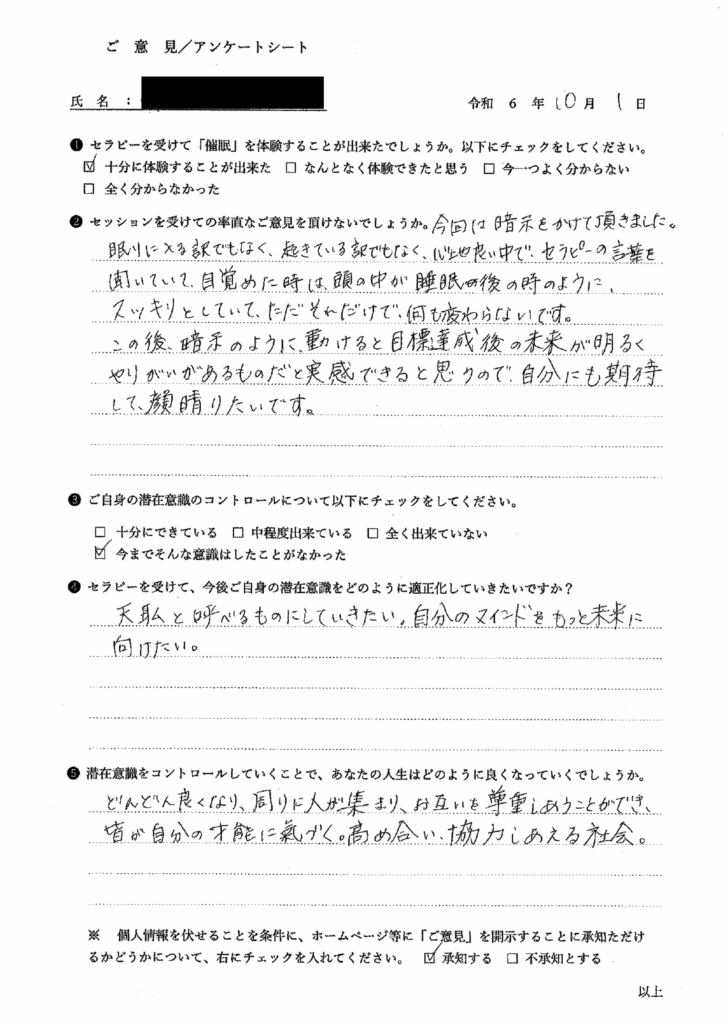 ご 意 見／アンケートシート
氏 名 ：
令和 6 年 10月 1日
❶ セラピーを受けて「催眠」を体験することが出来たでしょうか。以下にチェックをしてください。
☑ 十分に体験することが出来た □ なんとなく体験できたと思う □ 今一つよく分からない
□ 全く分からなかった
❷ セッションを受けての率直なご意見を頂けないでしょうか。今回は暗示をかけて頂きました。
眠りに入る訳でもなく、起きている訳でもなく、心地良い中で、セラピーの言葉を
聞いていて、目覚めた時は、頭の中が睡眠後の時のように、
スッキリとしていて、ただそれだけで、何も変わらないです。
この後、暗示のように、動けると目標達成後の未来が明るく
やりがいがあるものだと実感できると思うので、自分にも期待
して、顔晴りたいです。
❸ ご自身の潜在意識のコントロールについて以下にチェックをしてください。
□ 十分にできている □ 中程度出来ている □ 全く出来ていない
☑ 今までそんな意識はしたことがなかった
❹ セラピーを受けて、今後ご自身の潜在意識をどのように適正化していきたいですか？
天職と呼べるものにしていきたい。自分のマインドをもっと未来に
向けたい。
❺ 潜在意識をコントロールしていくことで、あなたの人生はどのように良くなっていくでしょうか。
どんどん良くなり、周りに人が集まり、お互いを尊重しあうことができ、
皆が自分の才能に氣づく。高め合い、協力しあえる社会。
※ 個人情報を伏せることを条件に、ホームページ等に「ご意見」を開示することに承知ただけ
るかどうかについて、右にチェックを入れてください。 ☑ 承知する □ 不承知とする
以上